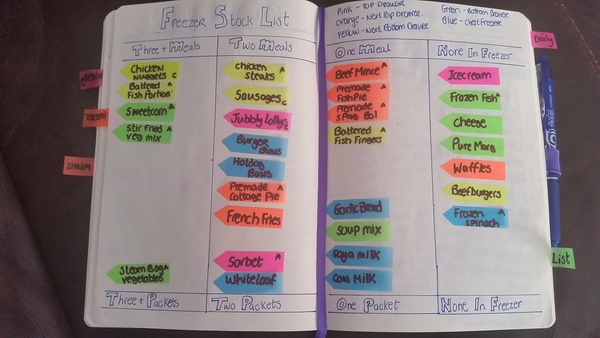 Freezer Stock List
Pink - Top Drawer
Orange - Next Top Drawer
Yellow - Next Bottom Drawer
Green - Bottom Drawer
Blue - Chest Freezer
Three + Meals
Chicken
Nuggets C
Battered A
Fish Portion
Sweetcorn A
Stir Fried A
veg mix
Steam Bag A
vegetables
Three + Packets
Two Meals
Chicken A
Steaks
Sausages C
Jubbly Lollys
Burger
Buns
Hotdog
Buns
Premade A
Cottage Pie
French Fries
Sorbet A
White loaf
Two Packets
One Meal
Beef Mince A
Premade A
Fish Pie
Premade A
Spag Bol
Battered A
Fish Fingers
Garlic Bread
Soup mix
Soya milk
Cow Milk
One Packet
None In Freezer
Icecream
Frozen Fish A
Cheese
Pure Marg
Waffles
Beefburgers
Frozen A
Spinach
None In Freezer
Daily
List